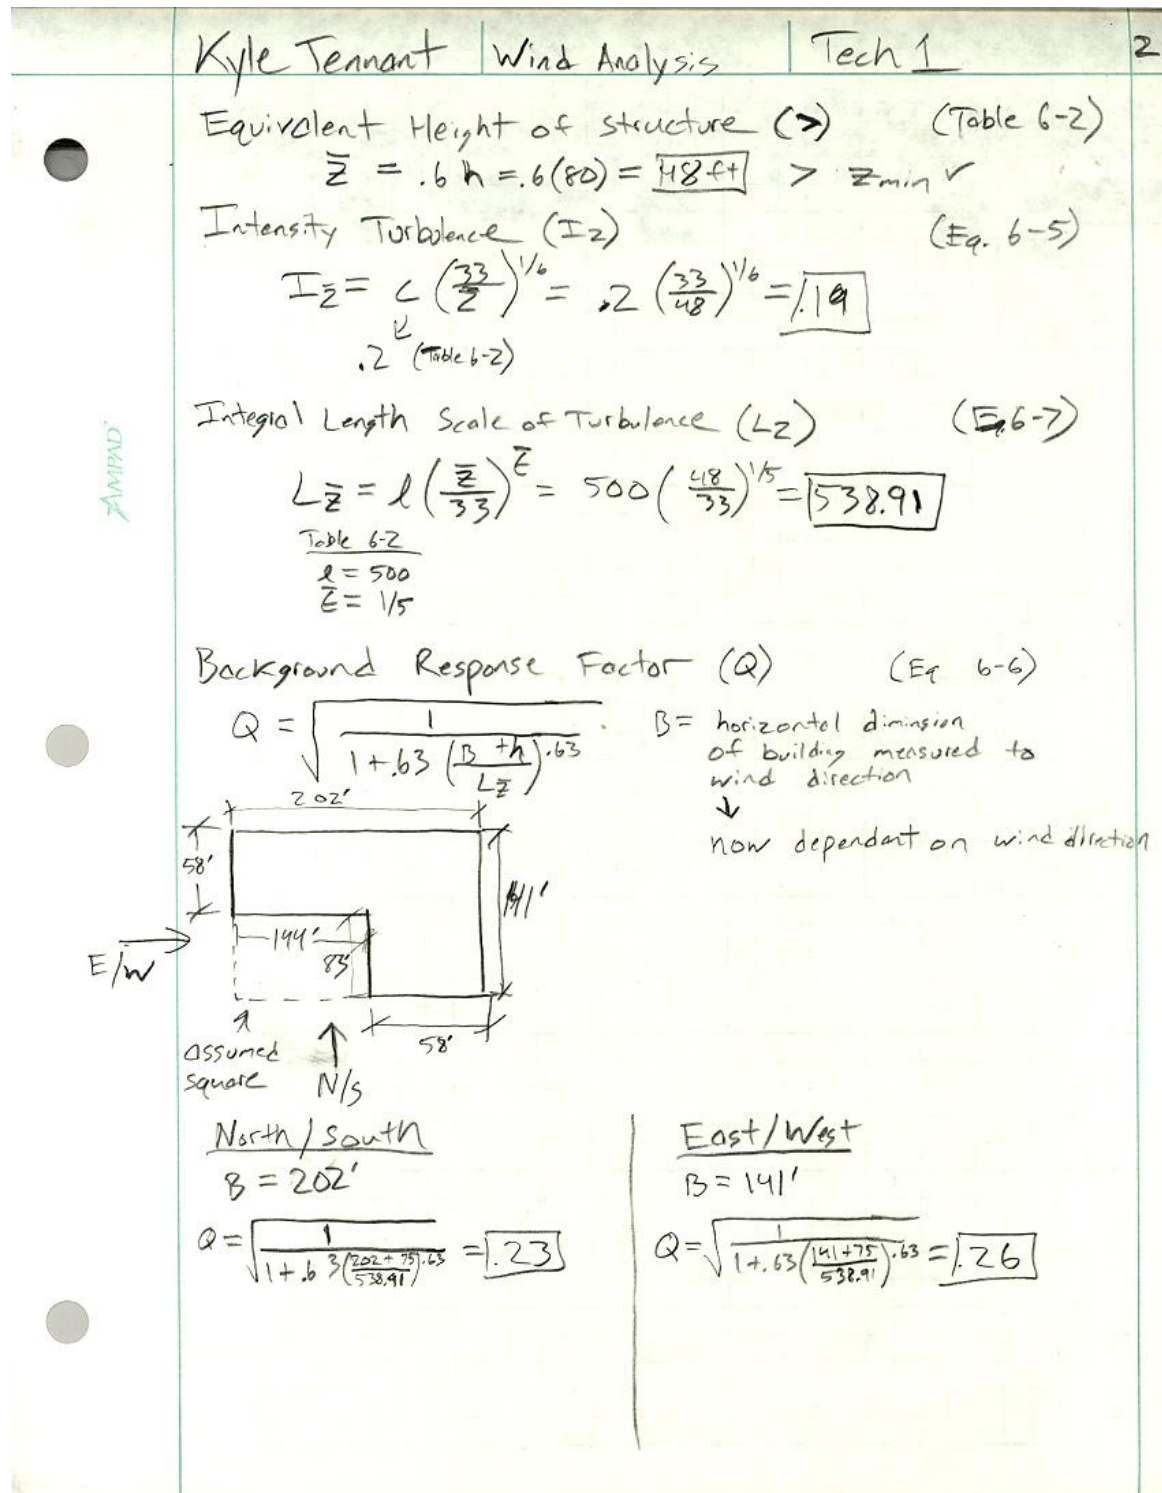 Kyle Tennant | Wind Analysis | Tech 1 2
Equivalent Height of structure (>) (Table 6-2)
z̄ = .6 h = .6(80) = 48 ft > zmin ✓
Intensity Turbulence (Iz) (Eq. 6-5)
Iz̄ = c (33/z̄)^1/6 = .2 (33/48)^1/6 = .19
.2 (Table 6-2)
Integral Length Scale of Turbulence (Lz) (Eq. 6-7)
Lz̄ = l (z̄/33)^Ē = 500 (48/33)^1/5 = 538.91
Table 6-2
l = 500
Ē = 1/5
AMPAD
Background Response Factor (Q) (Eq 6-6)
Q = √(1/(1+.63 ((B+h)/Lz̄)^.63))
B = horizontal diminsion
of building measured to
wind direction
↓
now dependant on wind direction
202'
58'
141'
144'
83'
E/W
58'
assumed
square
N/S
North/South
B = 202'
Q = √(1/(1+.63((202+75)/538.91)^.63)) = .23
East/West
B = 141'
Q = √(1/(1+.63((141+75)/538.91)^.63)) = .26